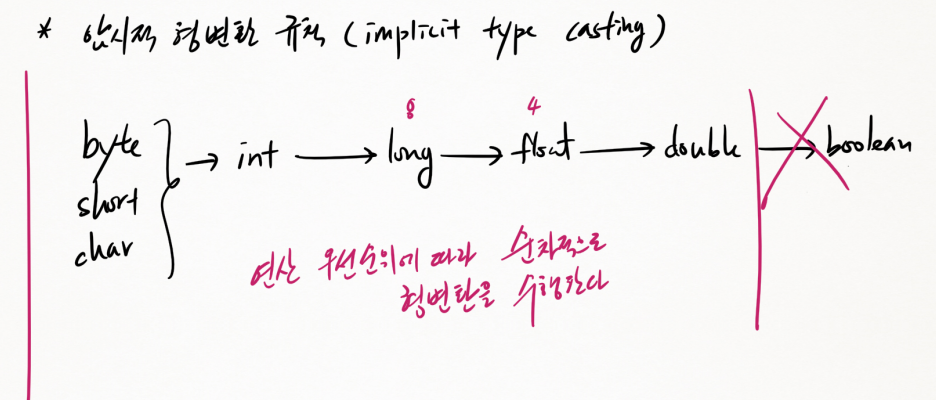 * 암시적 형변환 규칙 (implicit type casting)
8 4
byte
short
char
} → int → long → float → double → boolean
연산 우선순위에 따라 순차적으로
형변환을 수행한다